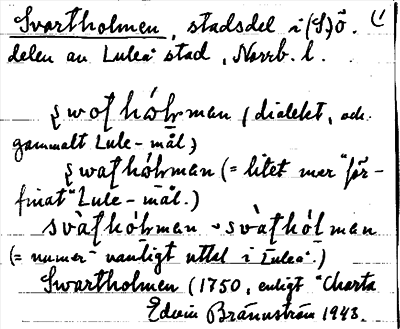 Svartholmen, stadsdel i (S)Ö. (1
delen av Luleå stad, Norrb. l.
ʂwoƭhólman (dialekt, och
gammalt Lule-mål)
ʂwaƭhólman (= litet mer "för-
finat" Lule-mål.)
svàƭhólman ~ svàƭhólman
(= numer vanligt uttal i Luleå.)
Swartholmen (1750, enligt "Charta
Edvin Brännström 1943.